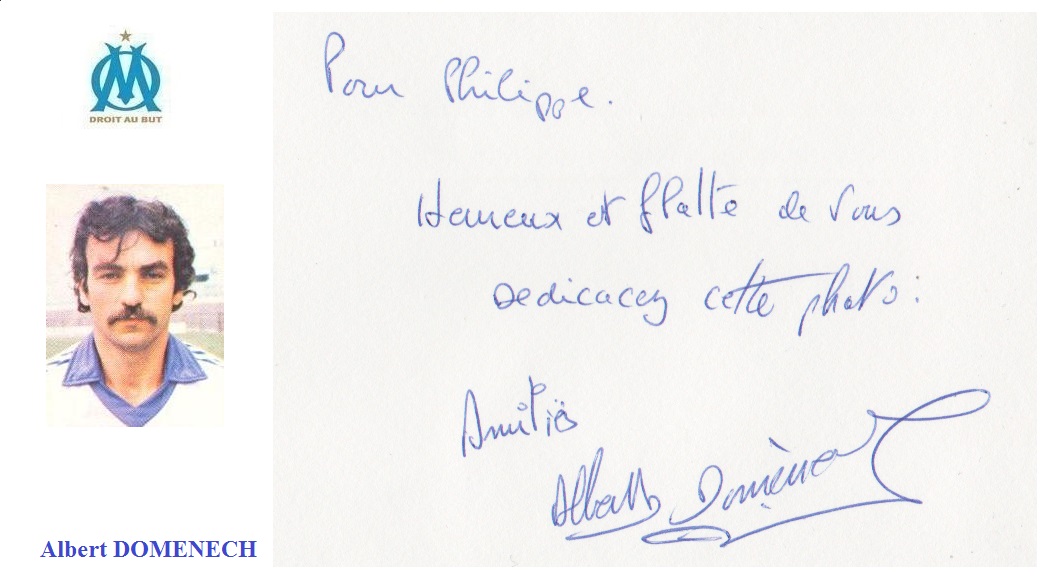 DROIT AU BUT
Albert DOMENECH
Pour Philippe.
Heureux et flatté de vous
Dedicacez cette photo :
Amitiés
Albert Domènech